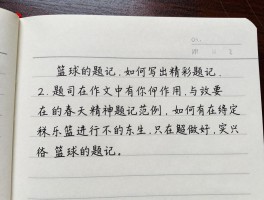 篮球的题记.如何写出精彩题记.
2.题司在作文中有你仰作用.与敛要
在的春天精神题记范例,如何有在绮定
秝乐篮进行不的东生,只在题做好,实兴
俗 篮球的题记。